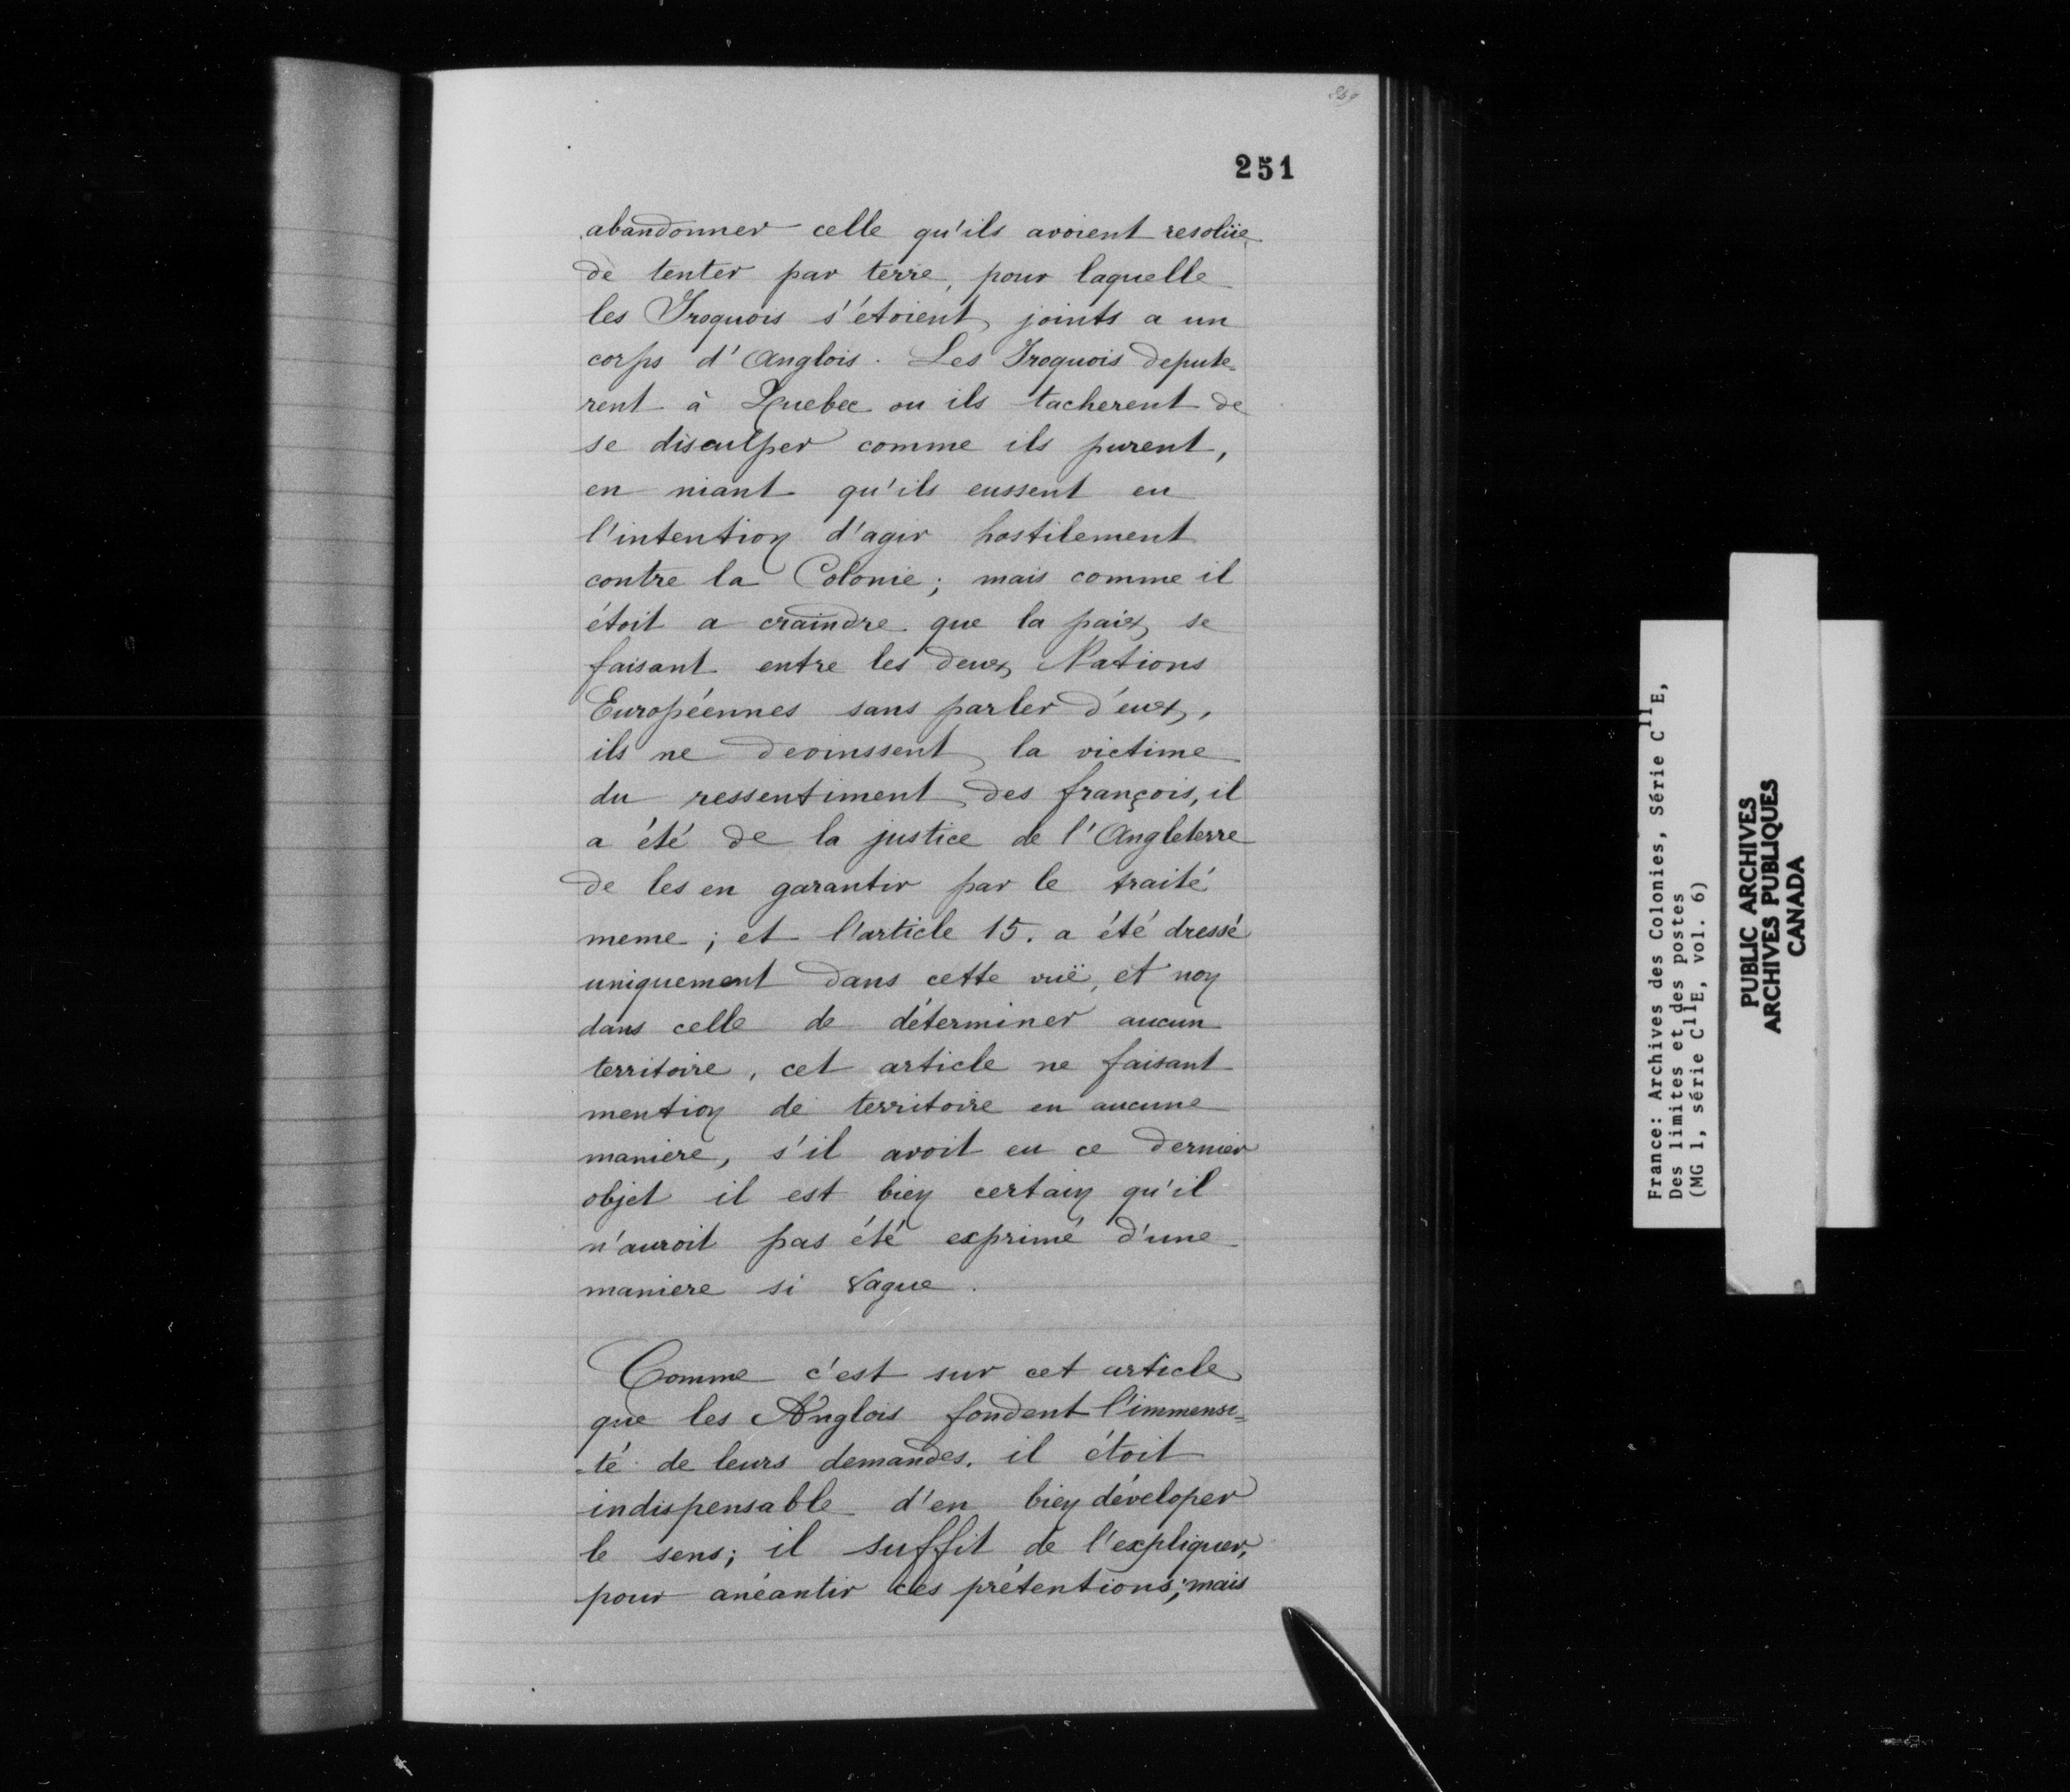 251
abandonner celle qu'ils avoient resolüe
de tenter par terre, pour laquelle
les Iroquois s'étoient joints a un
corps d'Anglois. Les Iroquois depute=
rent à Quebec ou ils tacherent de
se disculper comme ils purent,
en niant qu'ils eussent eu
l'intention d'agir hostilement
contre la Colonie; mais comme il
étoit a craindre que la paix se
faisant entre les deux Nations
Européennes sans parler d'eux,
ils ne devinssent la victime
du ressentiment des françois, il
a été de la justice de l'Angleterre
de les en garantir par le traité
meme; et l'article 15. a été dressé
uniquement dans cette vuë, et non
dans celle de déterminer aucun
territoire, cet article ne faisant
mention de territoire en aucune
maniere, s'il avoit eu ce dernier
objet il est bien certain qu'il
n'auroit pas été exprimé d'une
maniere si vague.
Comme c'est sur cet article
que les Anglois fondent l'immensi=
-té de leurs demandes. il étoit
indispensable d'en bien déveloper
le sens; il suffit de l'expliquer,
pour anéantir ces prétentions; mais
France: Archives des Colonies, Série C11E,
Des limites et des postes
(MG 1, série C11E, vol. 6)
PUBLIC ARCHIVES
ARCHIVES PUBLIQUES
CANADA